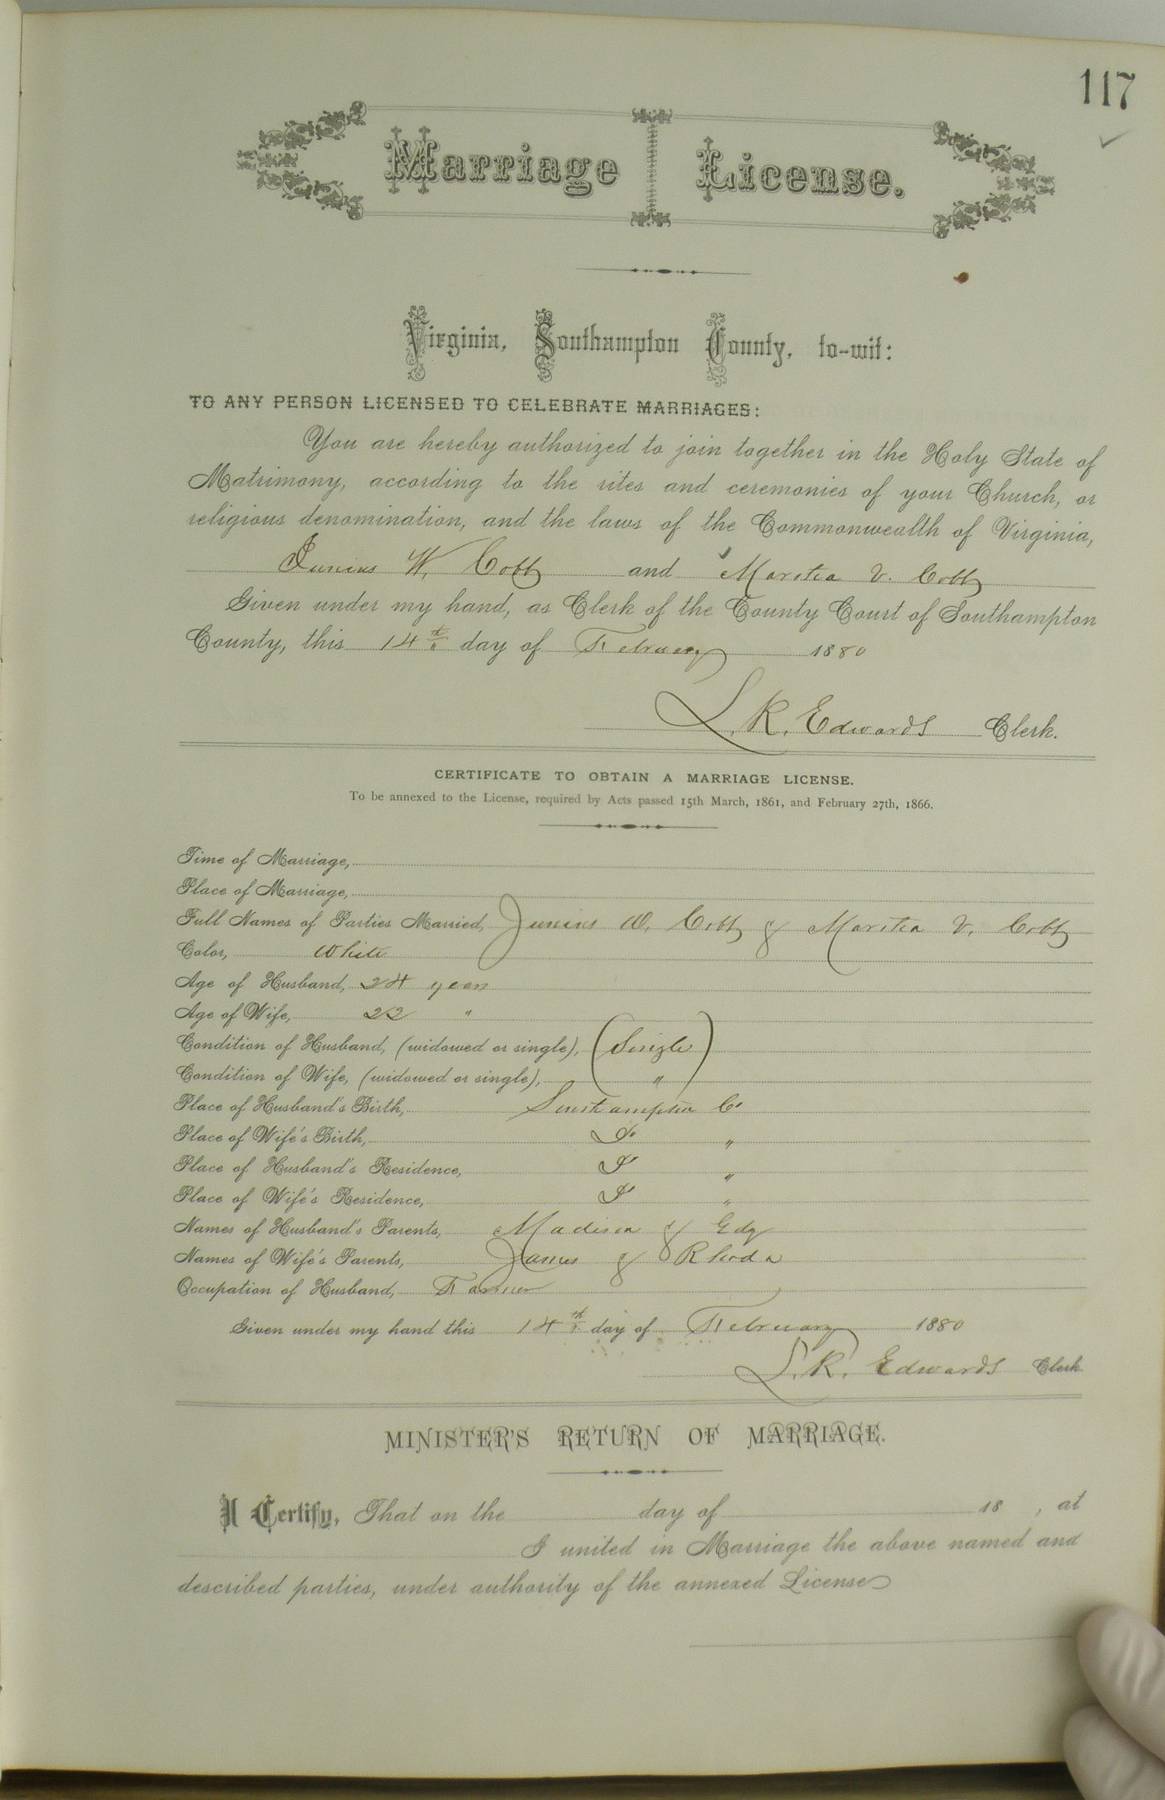 117
Marriage License.
Virginia, Southampton County, to-wit:
TO ANY PERSON LICENSED TO CELEBRATE MARRIAGES:
You are hereby authorized to join together in the Holy State of
Matrimony, according to the rites and ceremonies of your Church, or
religious denomination, and the laws of the Commonwealth of Virginia,
Junius W. Cobb and Marsha V. Cobb
Given under my hand, as Clerk of the County Court of Southampton
County, this 14th day of February 1880
L. R. Edwards Clerk.
CERTIFICATE TO OBTAIN A MARRIAGE LICENSE.
To be annexed to the License, required by Acts passed 15th March, 1861, and February 27th, 1866.
Time of Marriage,
Place of Marriage,
Full Names of Parties Married, Junius W. Cobb & V. Cobb
Color, White
Age of Husband, 24 years
Age of Wife, 22 "
Condition of Husband, (widowed or single), (Single)
Condition of Wife, (widowed or single), "
Place of Husband's Birth, Southampton Co
Place of Wife's Birth, Do "
Place of Husband's Residence, Do "
Place of Wife's Residence, Do "
Names of Husband's Parents, Madison & Edy
Names of Wife's Parents, James & Rhoda
Occupation of Husband, Farmer
Given under my hand this 14th day of February 1880
L. R. Edwards Clerk
MINISTER'S RETURN OF MARRIAGE.
I Certify, That on the day of 18 , at
I united in Marriage the above named and
described parties, under authority of the annexed License